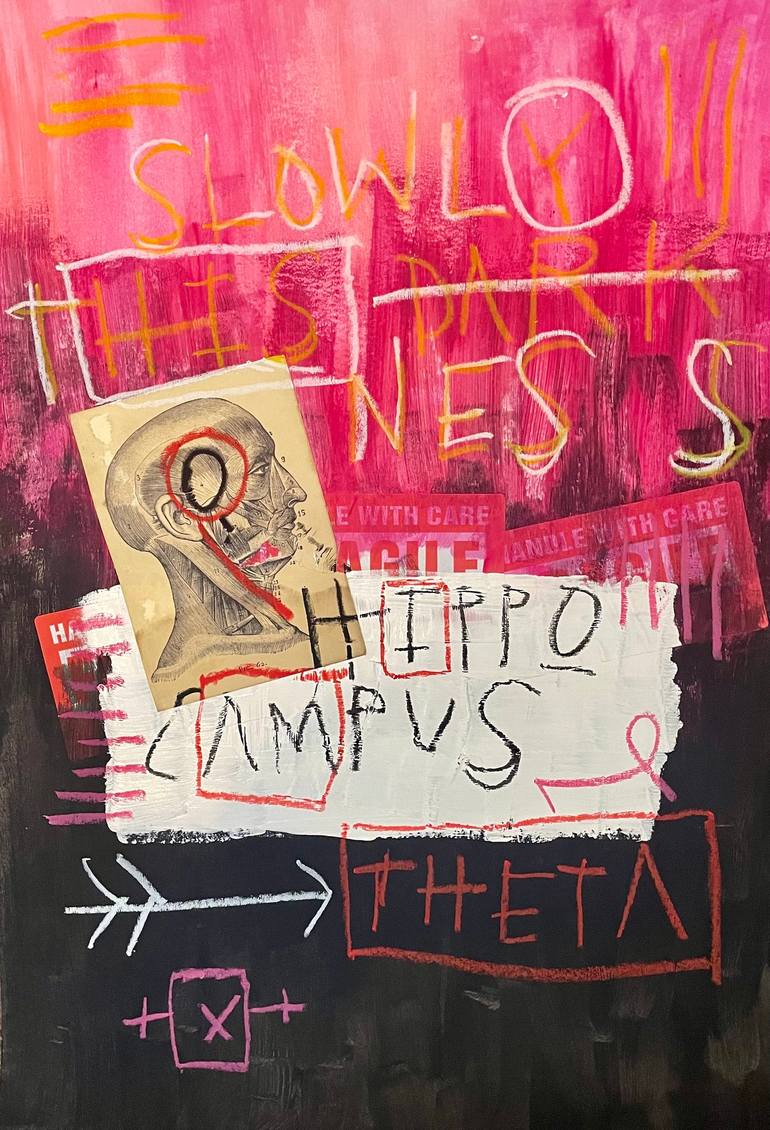 SLOWLY
THIS DARK
NESS
E WITH CARE
AGILE
HANDLE WITH CARE
HA
HIPPO
CAMPUS
THETA
X